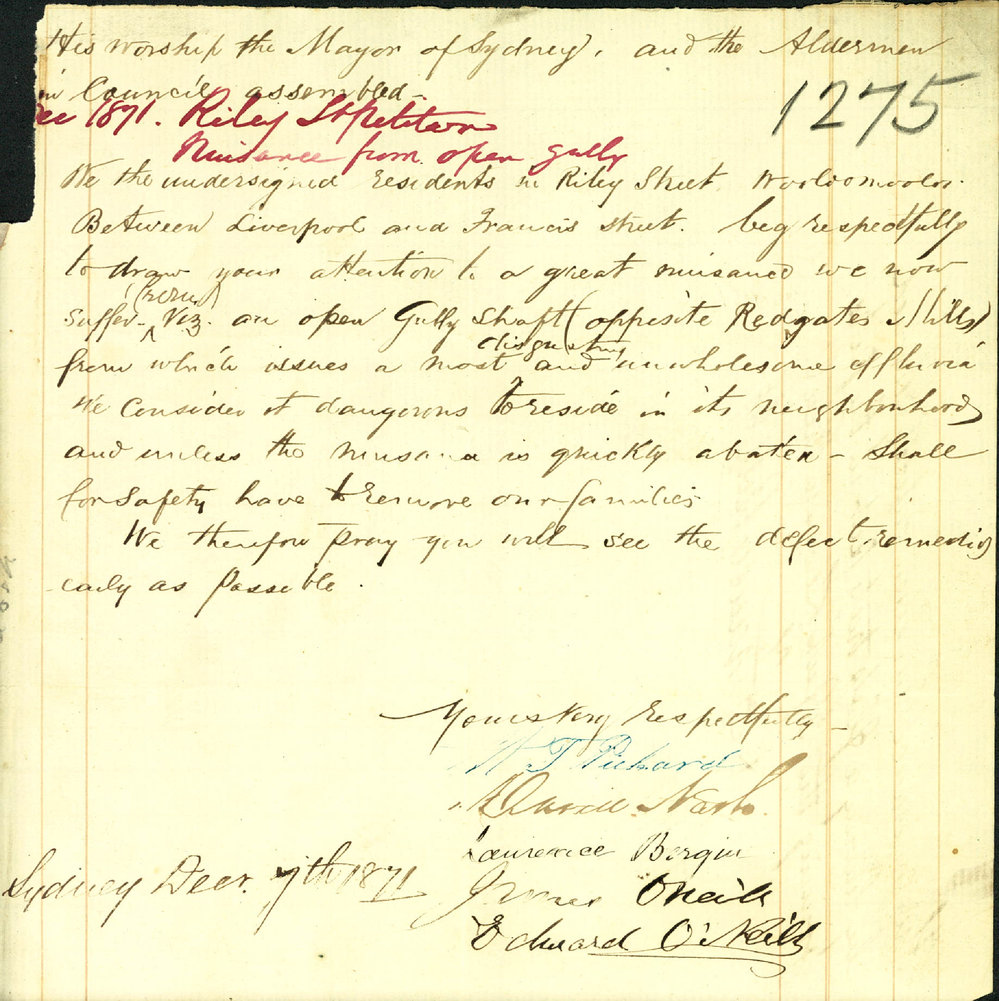 His worship the Mayor of Sydney, and the Aldermen
in Council assembled -
1275
Dec 1871. Riley St petition
Nuisance from open gully
We the undersigned residents in Riley Street Wooloomooloo.
Between Liverpool and Francis Street. beg respectfully
to draw your attention to a great nuisance we now
(from)
suffer - Viz. an open Gully Shaft (opposite Redgates Mills)
disgusting
from which issues a most and unwholesome effluvia
We consider it dangerous to reside in its neighbourhood
and unless the nusance is quickly abated - Shall
for Safety have to remove our families
We therefore pray you will see the defect remedied
early as Possible.
Yours Very respectfully -
T Pichard
David Nash
Laurence Bergin
Sydney Decr. 7th 1871
James ONeill
Edward O'Neill